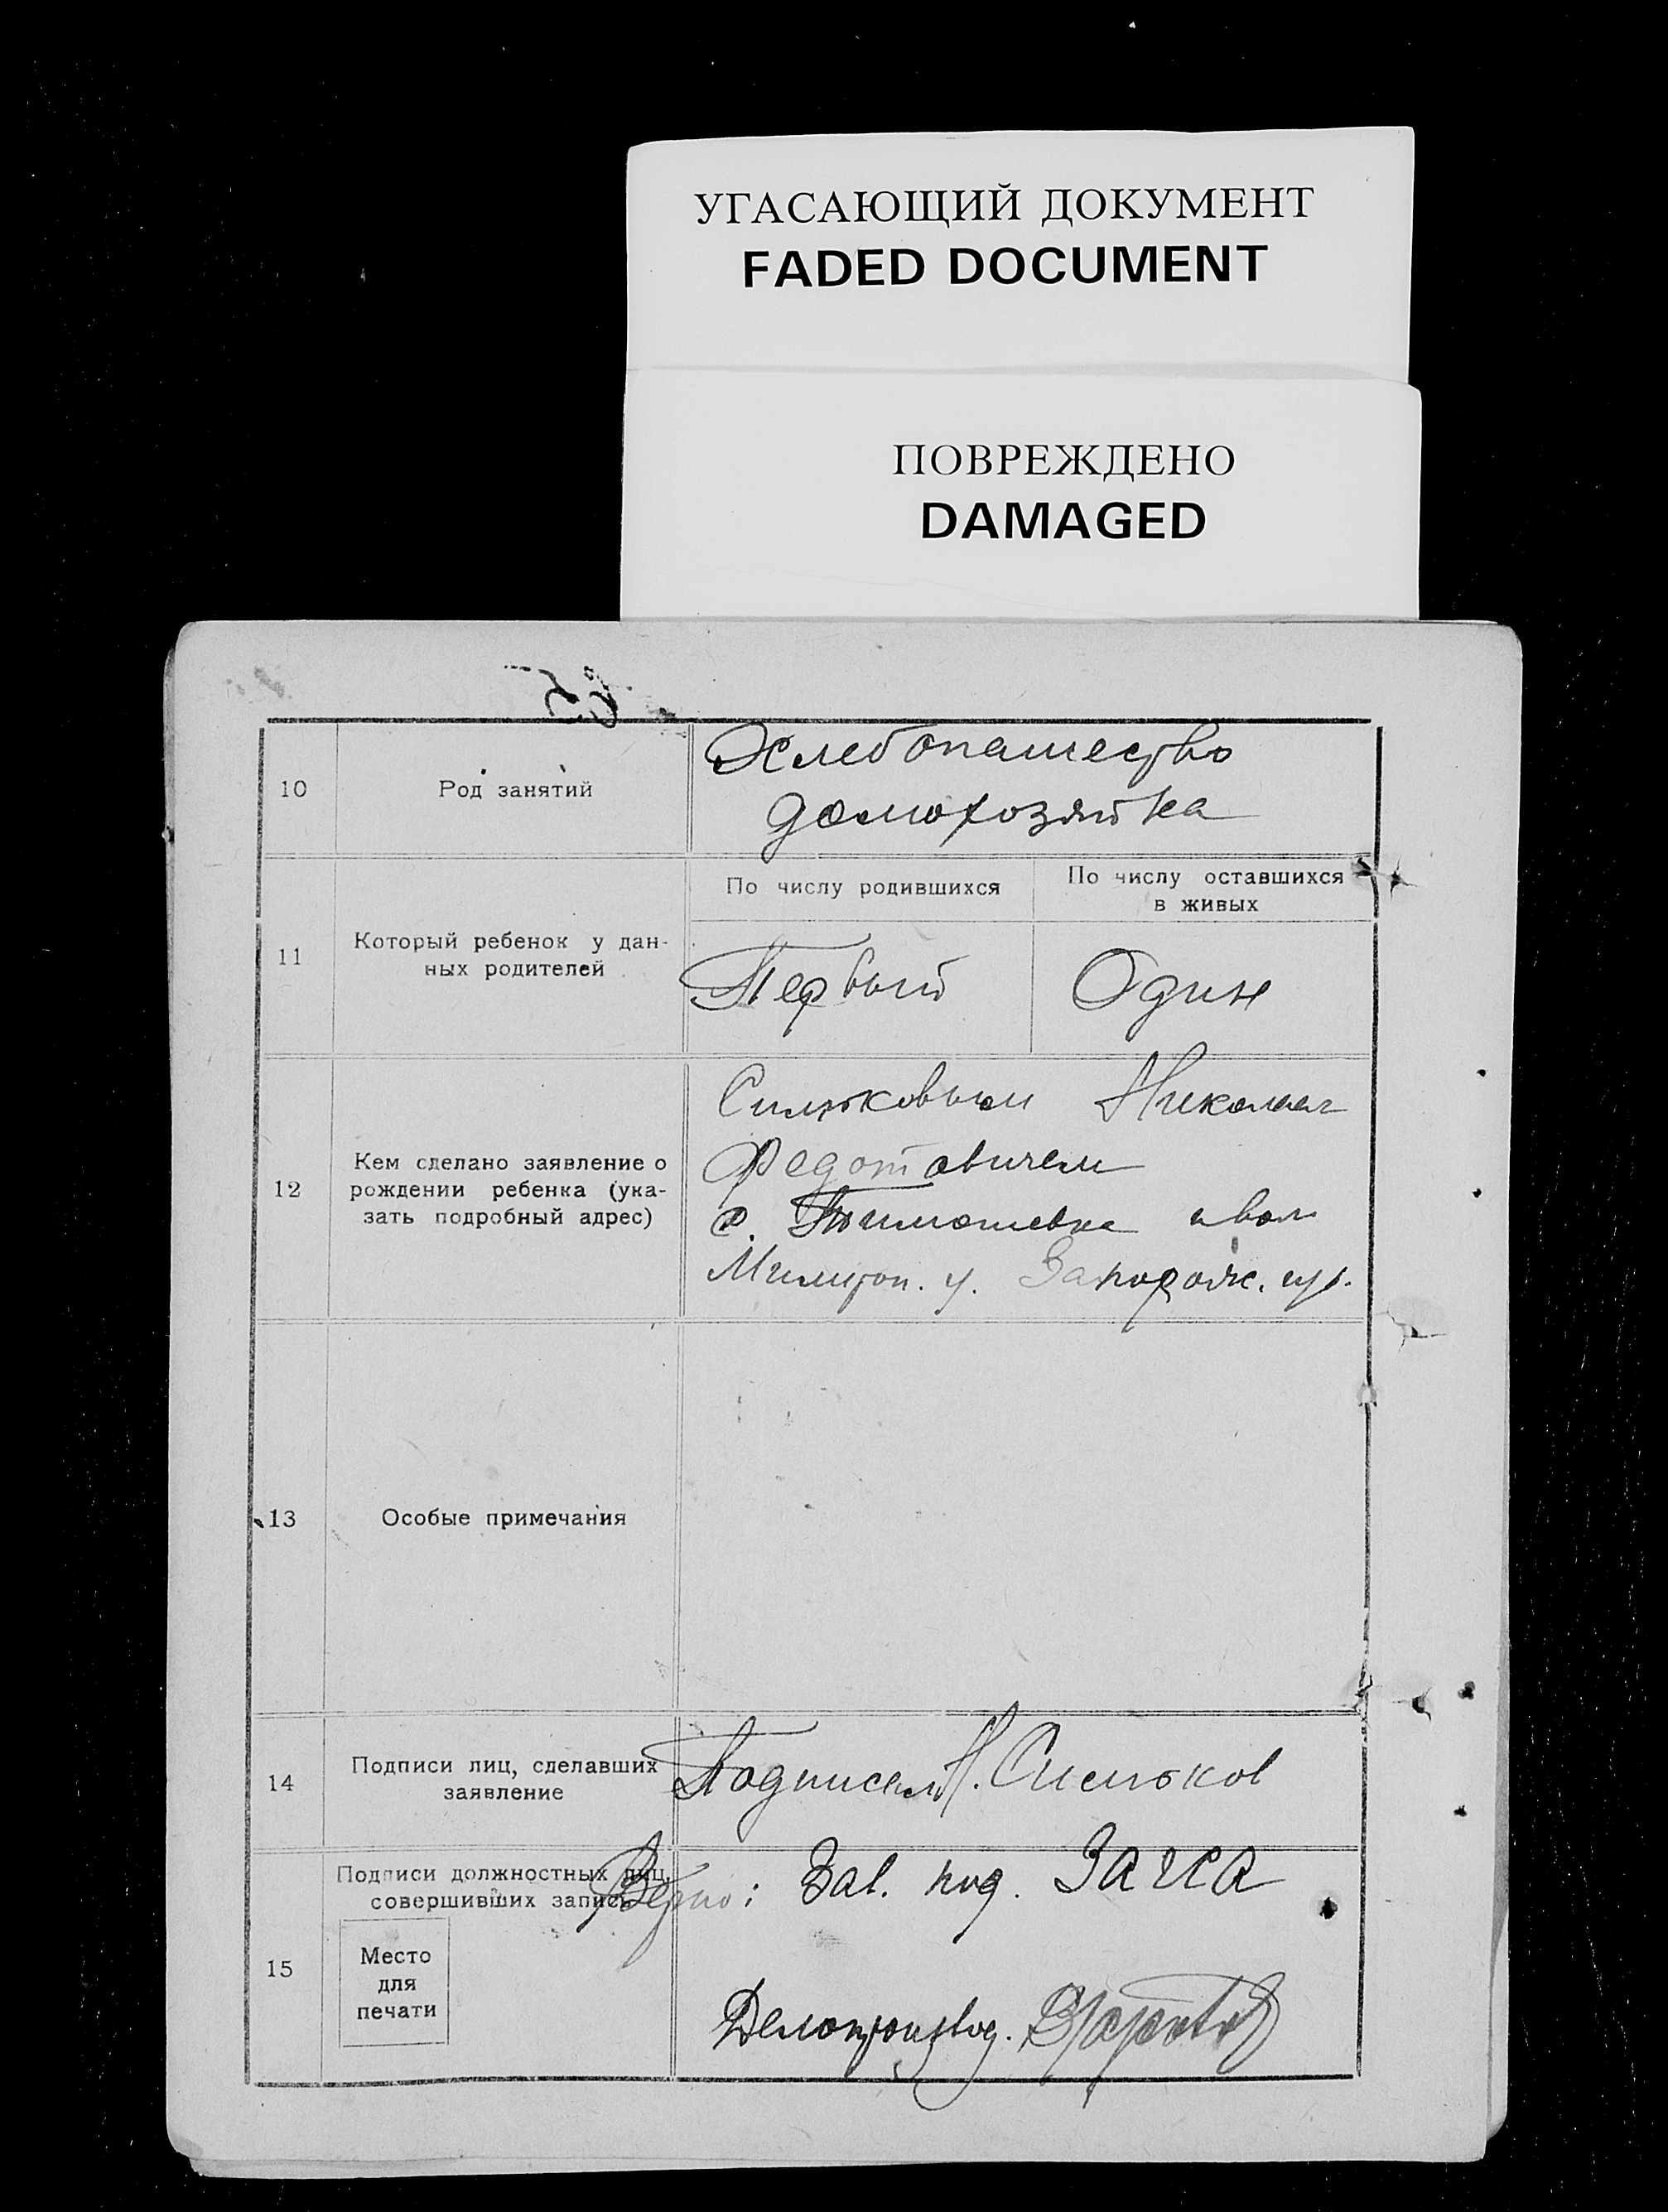 УГАСАЮЩИЙ ДОКУМЕНТ
FADED DOCUMENT
ПОВРЕЖДЕНО
DAMAGED
10
Род занятий
Хлебопашество
домохозяйка
11
Который ребенок у дан-
ных родителей
По числу родившихся
По числу оставшихся
в живых
Первый
Один
12
Кем сделано заявление о
рождении ребенка (ука-
зать подробный адрес)
Сильковым Николаем
Федотовичем
с. Тимошевка
Мелитоп. у. Запорож. губ.
13
Особые примечания
14
Подписи лиц, сделавших
заявление
Подписал Н. Сильков
15
Подписи должностных лиц,
совершивших запись
Место
для
печати
Верно: Зав. под. ЗАГСА
Делопроизвод.